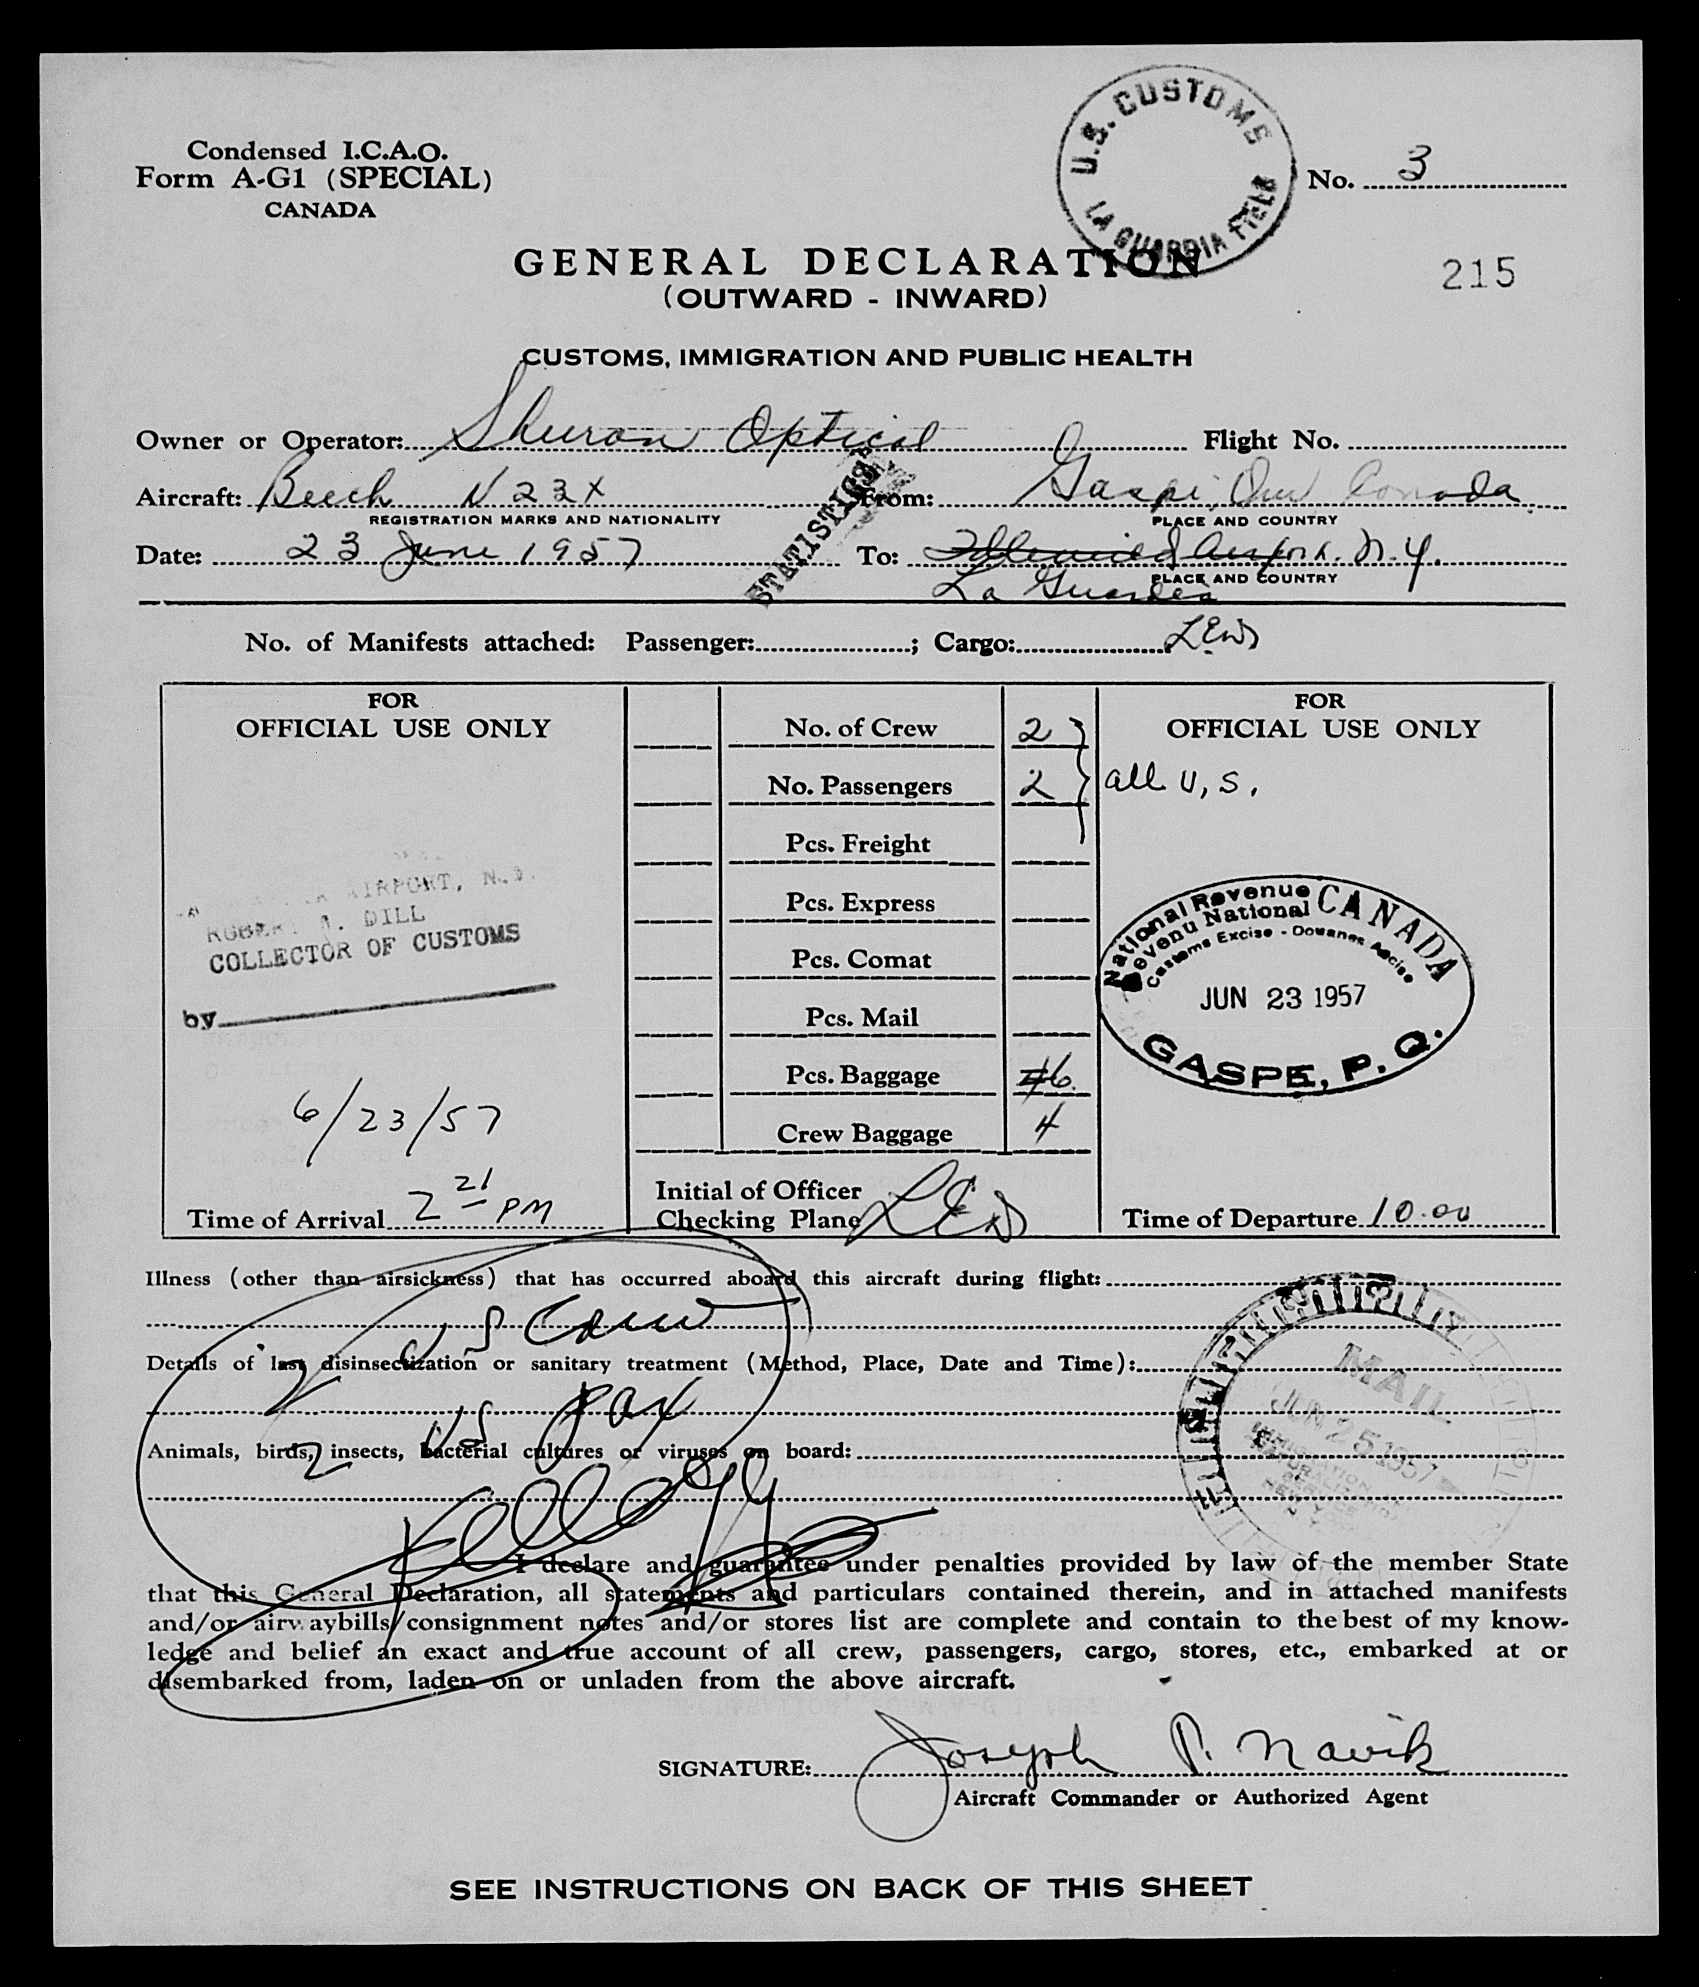 U.S. CUSTOMS
LA GUARDIA FIELD
Condensed I.C.A.O.
Form A-G1 (SPECIAL)
CANADA
No. 3
GENERAL DECLARATION
215
(OUTWARD - INWARD)
CUSTOMS, IMMIGRATION AND PUBLIC HEALTH
Owner or Operator: Shuron Optical Flight No.
Aircraft: Beech N23X From: Gaspi, Canada
REGISTRATION MARKS AND NATIONALITY PLACE AND COUNTRY
STATISTICS
Date: 23 June 1957 To: Idlewild Airport. N.Y.
PLACE AND COUNTRY
La Guardia
No. of Manifests attached: Passenger: ; Cargo:
FOR
OFFICIAL USE ONLY
AIRPORT, N.Y.
ROBERT DILL
COLLECTOR OF CUSTOMS
by
6/23/57
Time of Arrival 2 21 PM
No. of Crew 2
No. Passengers 2
Pcs. Freight
Pcs. Express
Pcs. Comat
Pcs. Mail
Pcs. Baggage 6
Crew Baggage 4
Initial of Officer
Checking Plane
FOR
OFFICIAL USE ONLY
all U.S.
National Revenue CANADA
Revenu National
Customs Excise - Douanes Accise
JUN 23 1957
GASPE, P. Q.
Time of Departure 10.00
Illness (other than airsickness) that has occurred aboard this aircraft during flight:
2 US Crew
Details of last disinsectization or sanitary treatment (Method, Place, Date and Time):
MAIL
JUN 25 1957
2 US Pax
Animals, birds, insects, bacterial cultures or viruses on board:
Kellogg
I declare and guarantee under penalties provided by law of the member State
that this General Declaration, all statements and particulars contained therein, and in attached manifests
and/or airwaybills/consignment notes and/or stores list are complete and contain to the best of my know-
ledge and belief an exact and true account of all crew, passengers, cargo, stores, etc., embarked at or
disembarked from, laden on or unladen from the above aircraft.
SIGNATURE: Joseph P. Navik
Aircraft Commander or Authorized Agent
SEE INSTRUCTIONS ON BACK OF THIS SHEET